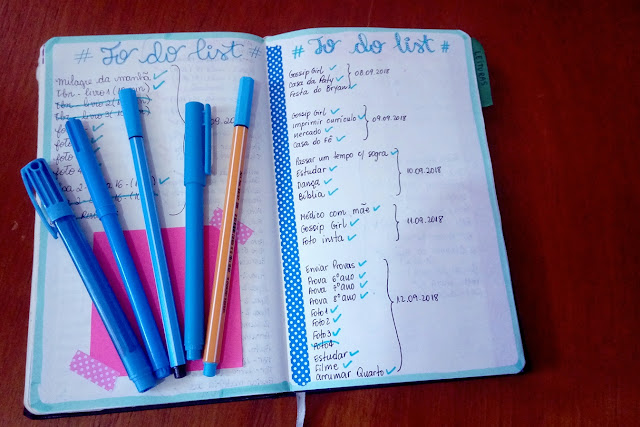 # To do list #
Milagre da manhã
Tbr - livro 1 (10 min)
Tbr - livro 2 (10 min)
Tbr - livro 3 (10 min)
foto
foto
foto
foto 4
# To do list #
Gossip Girl
Casa da Paty
Festa do Bryan
08.09.2018
Gossip Girl
Imprimir currículo
Mercado
Casa do Fê
09.09.2018
Passar um tempo c/ sogra
Estudar
Dança
Bíblia
10.09.2018
Médico com mãe
Gossip Girl
Foto insta
11.09.2018
Enviar Provas
Prova 6º ano
Prova 7º ano
Prova 8º ano
Foto 1
Foto 2
Foto 3
Foto 4
Estudar
Filme
Arrumar Quarto
12.09.2018